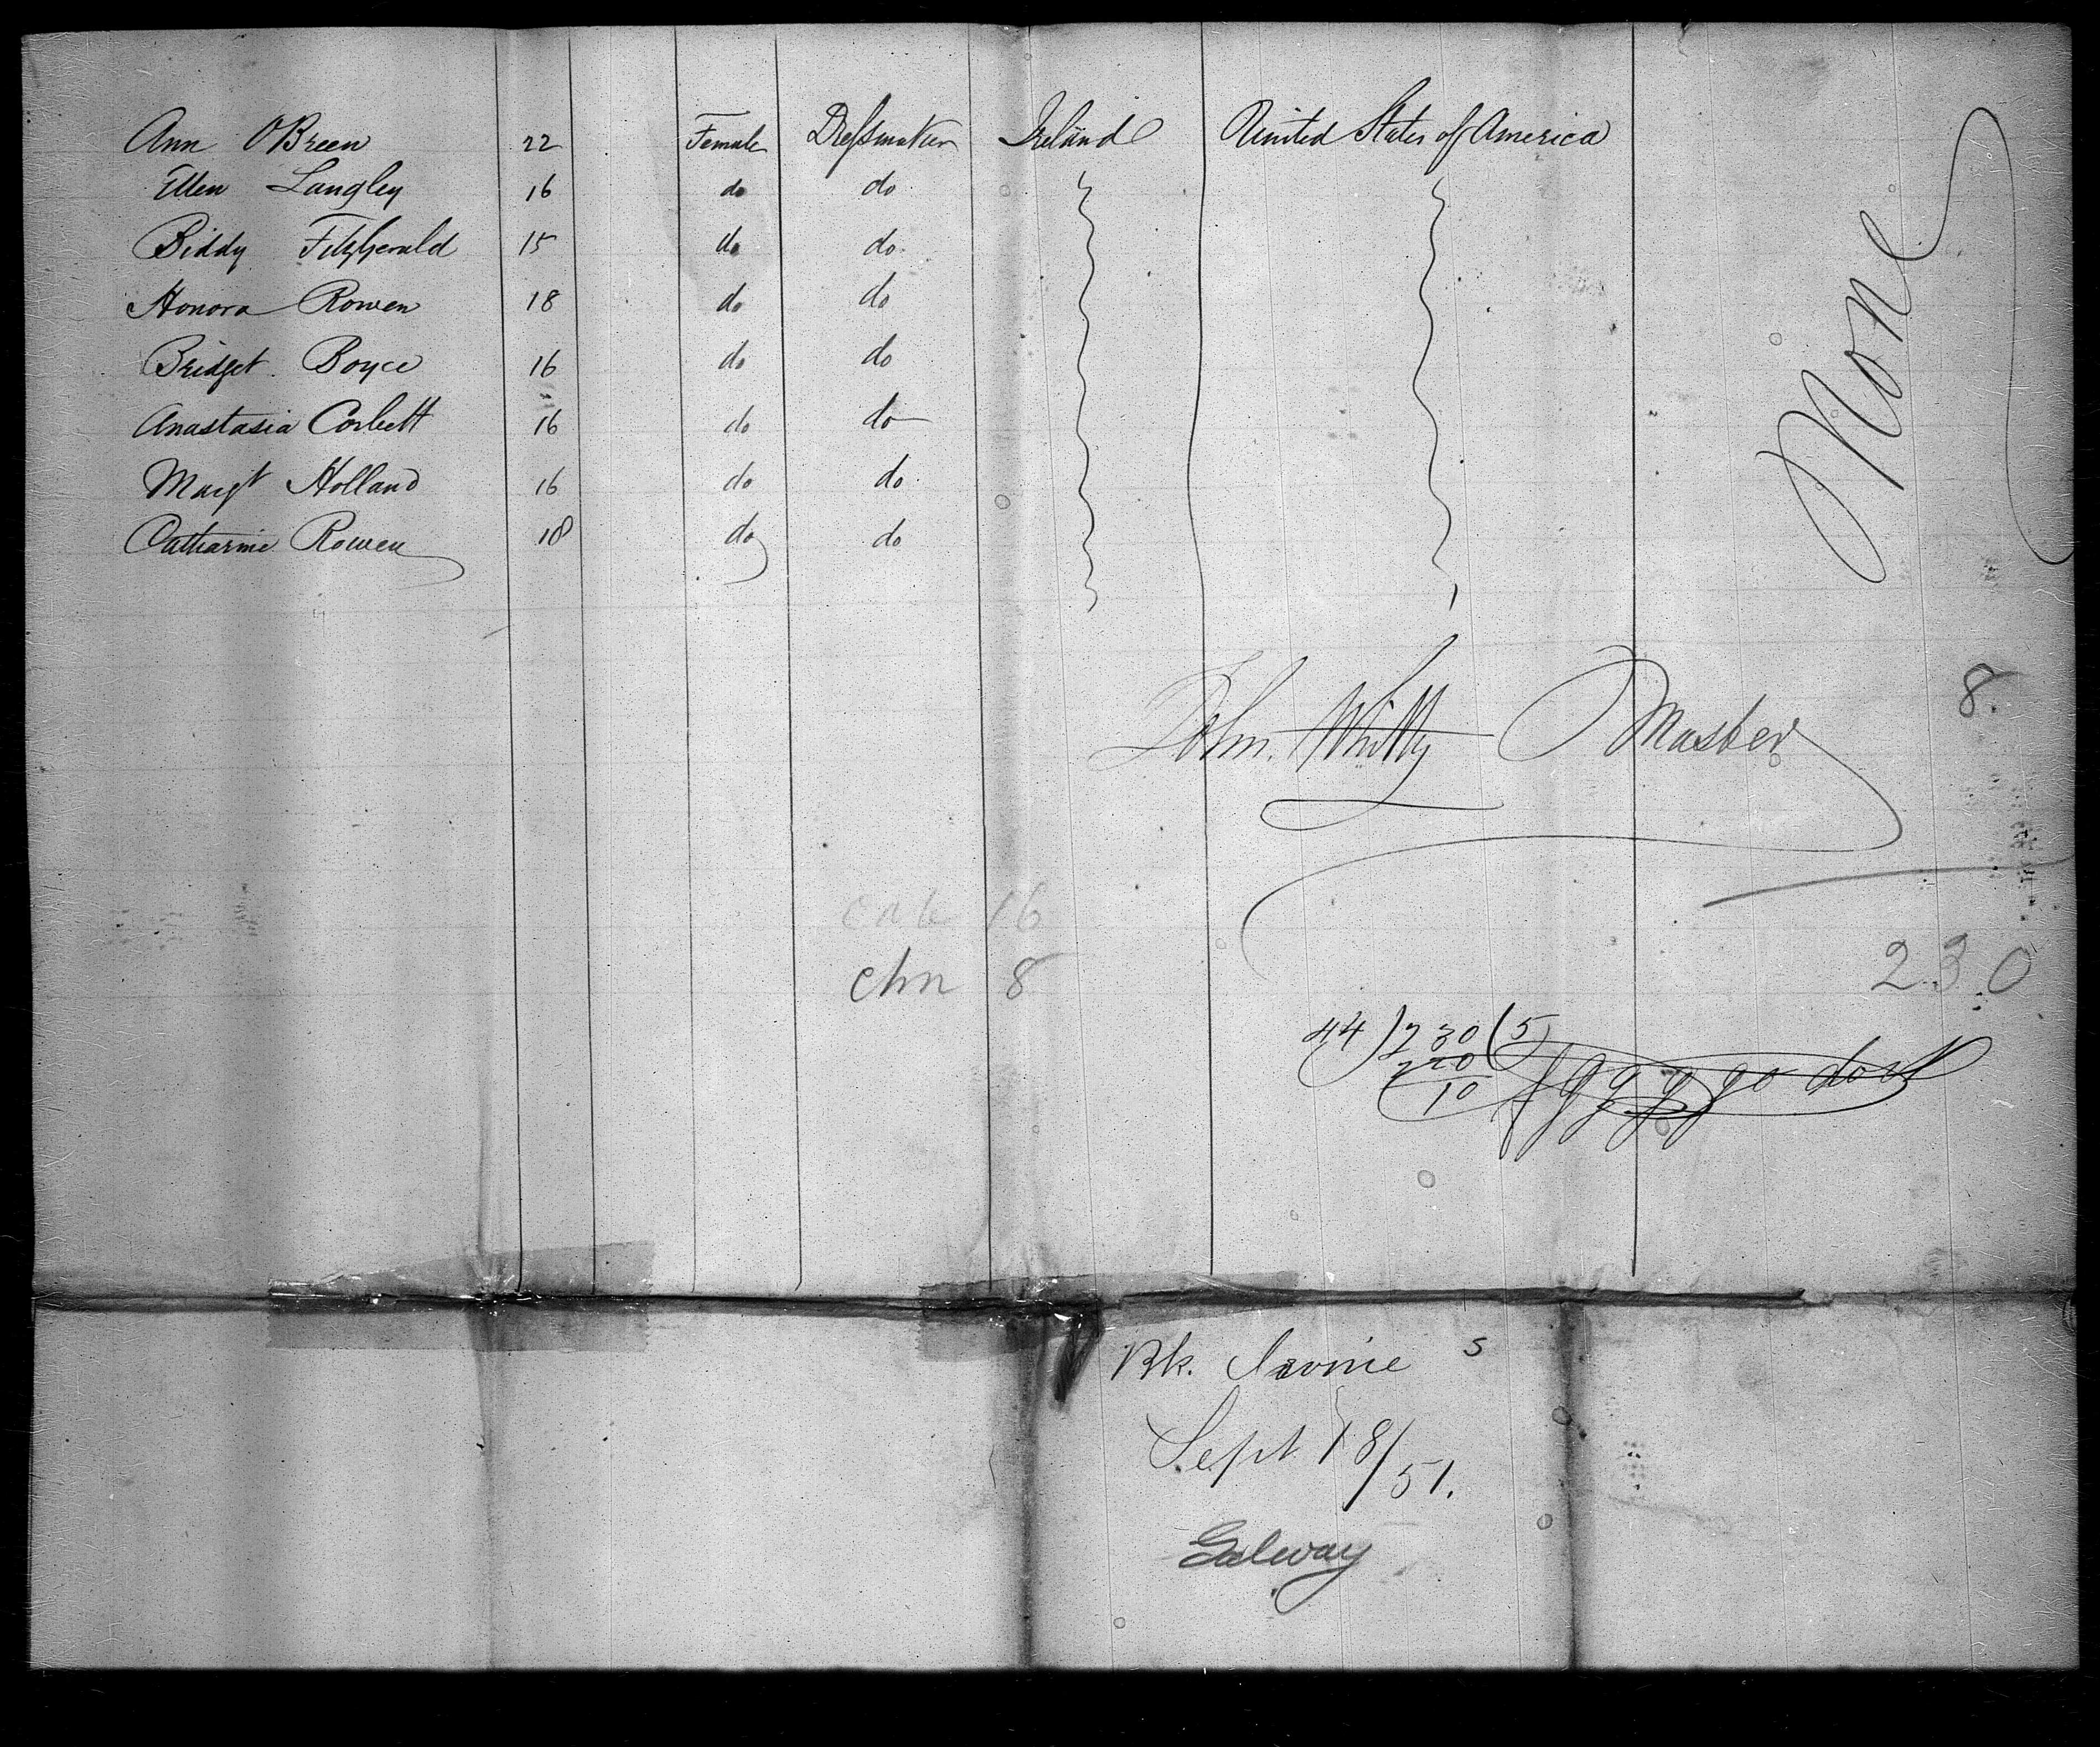 Ann OBreen 22 Female Dressmaker Ireland United States of America
Ellen Langley 16 do do
Biddy Fitzgerald 15 do do
Honora Rowen 18 do do
Bridget Boyce 16 do do
Anastasia Corbett 16 do do
Margt Holland 16 do do
Catharine Rowen 18 do do
None
8.
John Whitty Master
16
chn 8
230
44 ) 230 ( 5
220
10
Bk. s
Sept 18/51.
Galway